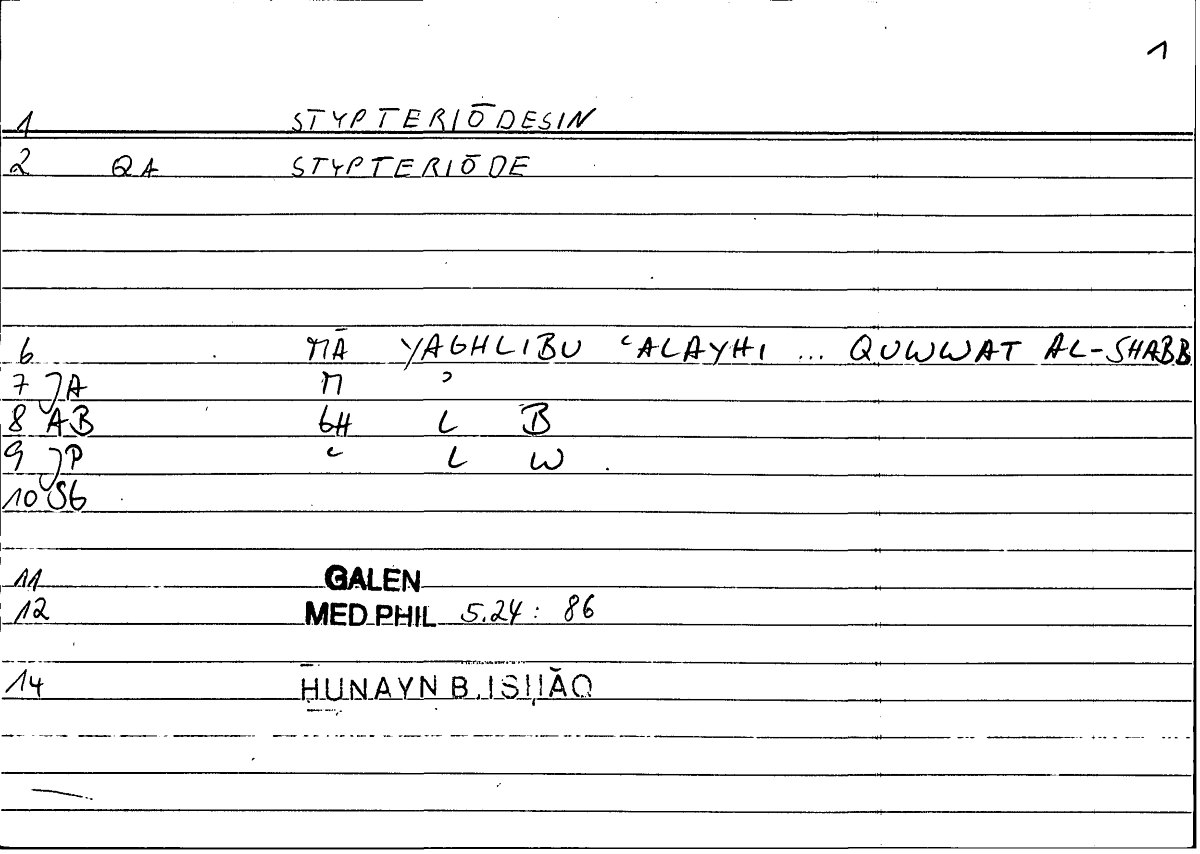 1
1 STYPTERIŌDESIN
2 QA STYPTERIŌDE
6 MĀ YAGHLIBU ʿALAYHI ... QUWWAT AL-SHABB
7 JA M ʾ
8 AB GH L B
9 JP ʿ L W
10 SG
11 GALEN
12 MED.PHIL 5.24: 86
14 ḤUNAYN B. ISḤĀQ